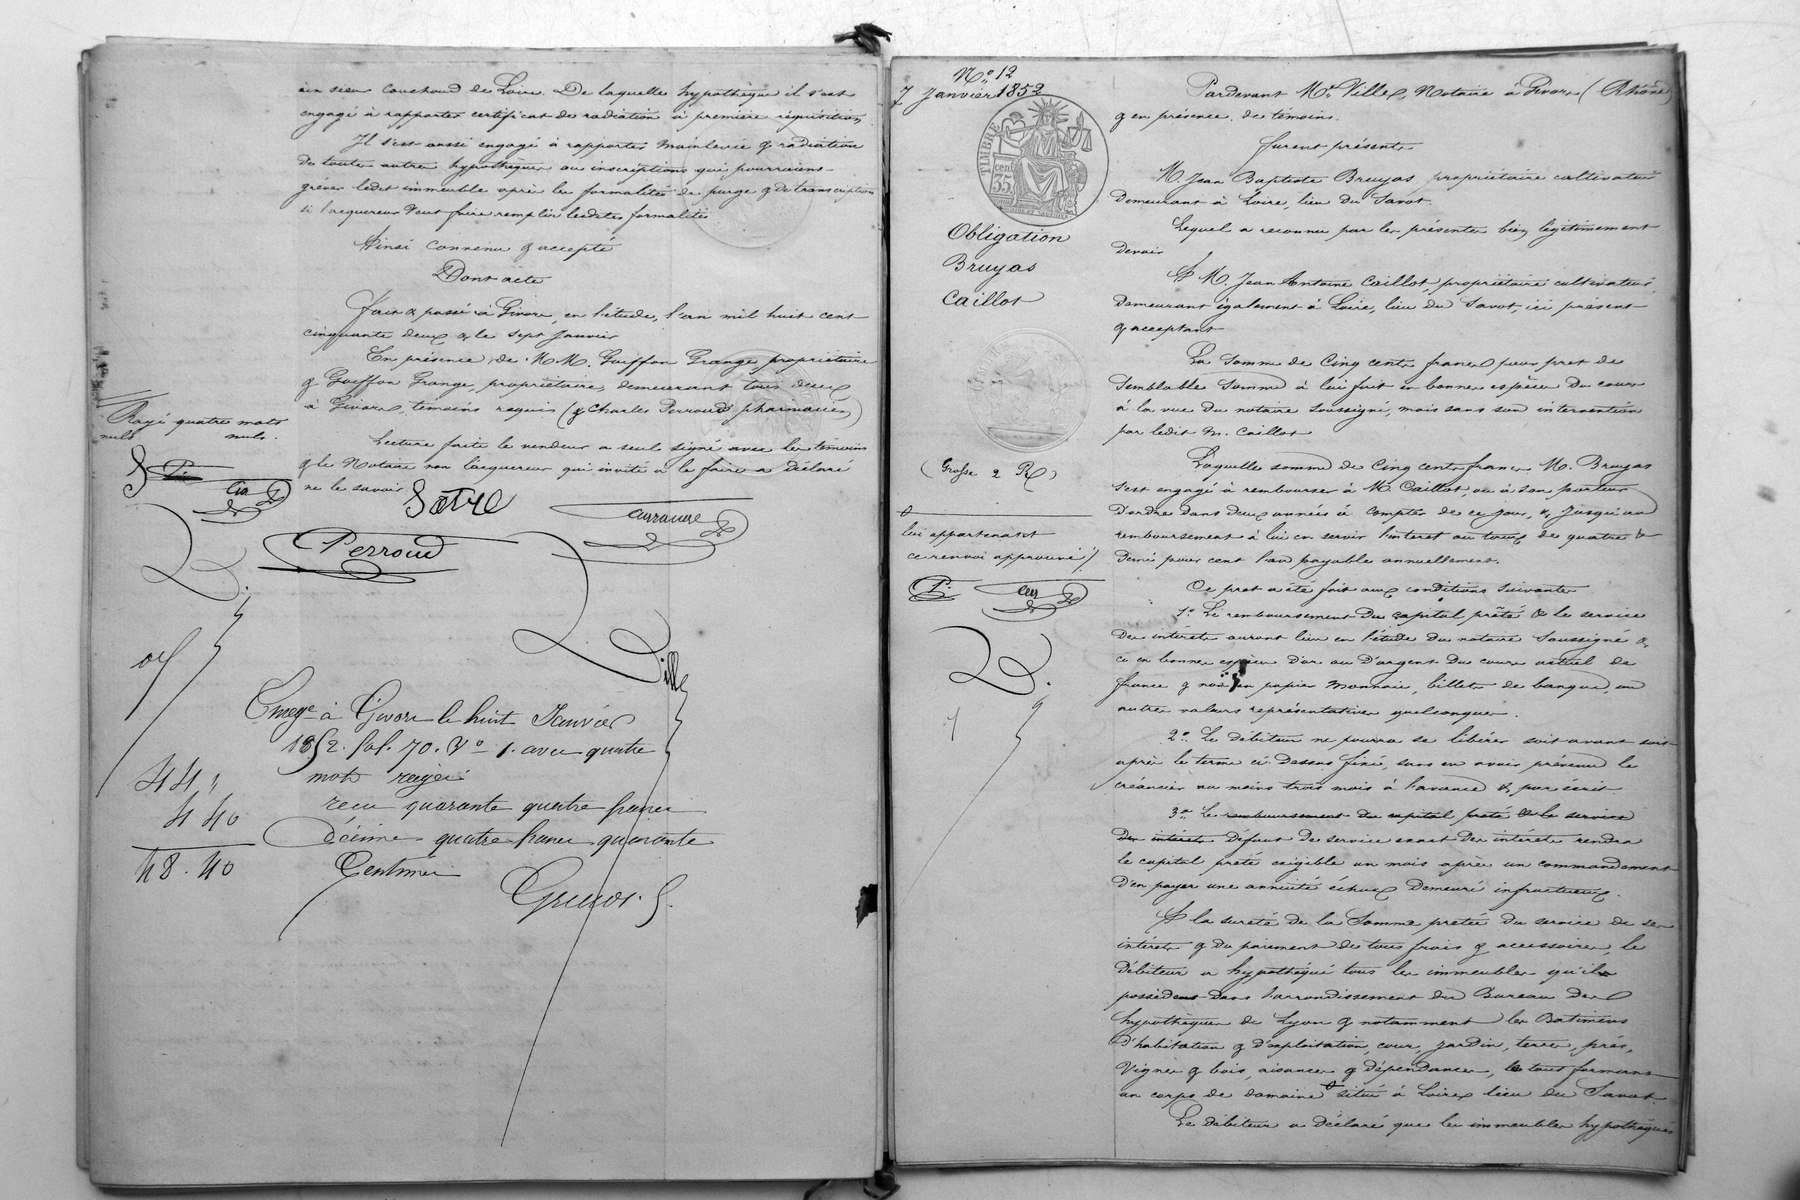 au sieur Couchoud de Loire. De laquelle hypothèque il s'est
engagé à rapporter certificat de radiation à première réquisition
Il s'est aussi engagé à rapporter mainlevée & radiation
de toute autre hypothèque ou inscriptions qui pourraient
gréver ledit immeuble après les formalités de purge & de transcription
si l'acquereur veut faire remplir lesdites formalités
Ainsi convenu & accepté
Dont acte
Fait & passé à Givors, en l'étude, l'an mil huit cent
cinquante deux & le sept Janvier
En présence de M.M. Goiffon Grange, propriétaire
& Goiffon Grange, propriétaire, demeurant tous deux
à Givors, témoins requis (& Charles Perroud pharmacien)
Lecture faite le vendeur a seul signé avec les témoins
& le Notaire non l'acquereur qui invité à le faire a déclaré
ne le savoir
Rayé quatre mots
nuls nuls.
Perroud
Ville
Enreg.é à Givors le huit Janvier
1852. fol. 70. V.o 1. avec quatre
mots rayés
reçu quarante quatre francs
décime quatre francs quarante
Centimes
44 "
4 40
48. 40
N.o 12
7 Janvier 1852
TIMBRE
35 cen
Obligation
Bruyas
Caillot
(Grosse 2 R)
lui appartenant
ce renvoi approuvé /.
Pardevant M.e Ville, Notaire à Givors (Rhône)
& en présence de témoins.
furent présents
M. Jean Baptiste Bruyas, propriétaire cultivateur
demeurant à Loire, lieu du Savot.
Lequel a reconnu par les présentes bien légitimement
devoir
A M. Jean Antoine Caillot, propriétaire cultivateur,
demeurant également à Loire, lieu du Savot, ici présent
& acceptant
La somme de Cinq cents francs pour pret de
semblable somme à lui fait en bonnes espèces du cours
à la vue du notaire soussigné, mais sans son intervention
par ledit M. Caillot
Laquelle somme de Cinq cents francs M. Bruyas
s'est engagé à rembourser à M. Caillot, ou à son porteur
d'ordre dans deux années à compter de ce jour, & jusqu'au
remboursement à lui en servir l'interet au taux de quatre &
demi pour cent l'an payable annuellement.
Ce pret a été fait aux conditions suivantes
1.o Le remboursement du capital prêté & le service
des intérêts auront lieu en l'étude du notaire soussigné &
ce en bonnes espèces d'or ou d'argent du cours actuel de
france & non en papier monnaie, billets de banque, ou
autres valeurs représentatives quelconques.
2.o Le débiteur ne pourra se libérer soit avant soit
après le terme ci-dessus fixé, sans en avoir prévenu le
créancier au moins trois mois à l'avance & par écrit
3.o Le remboursement du capital prêté & le service
des intérêts défaut de service exact des intérêts rendra
le capital preté exigible un mois après un commandement
d'en payer une annuité échue demeuré infructueux.
A la sureté de la somme pretée du service de ses
intérêts & du paiement de tous frais & accessoires, le
débiteur a hypothéqué tous les immeubles qu'il
possède dans l'arrondissement du Bureau des
hypothèques de Lyon & notamment les Batiments
d'habitation & d'exploitation, cour, jardin, terres, prés,
vignes & bois, aisances & dépendances, le tout formant
un corps de domaine situé à Loire lieu du Savot.
Le débiteur a déclaré que les immeubles hypothéqués